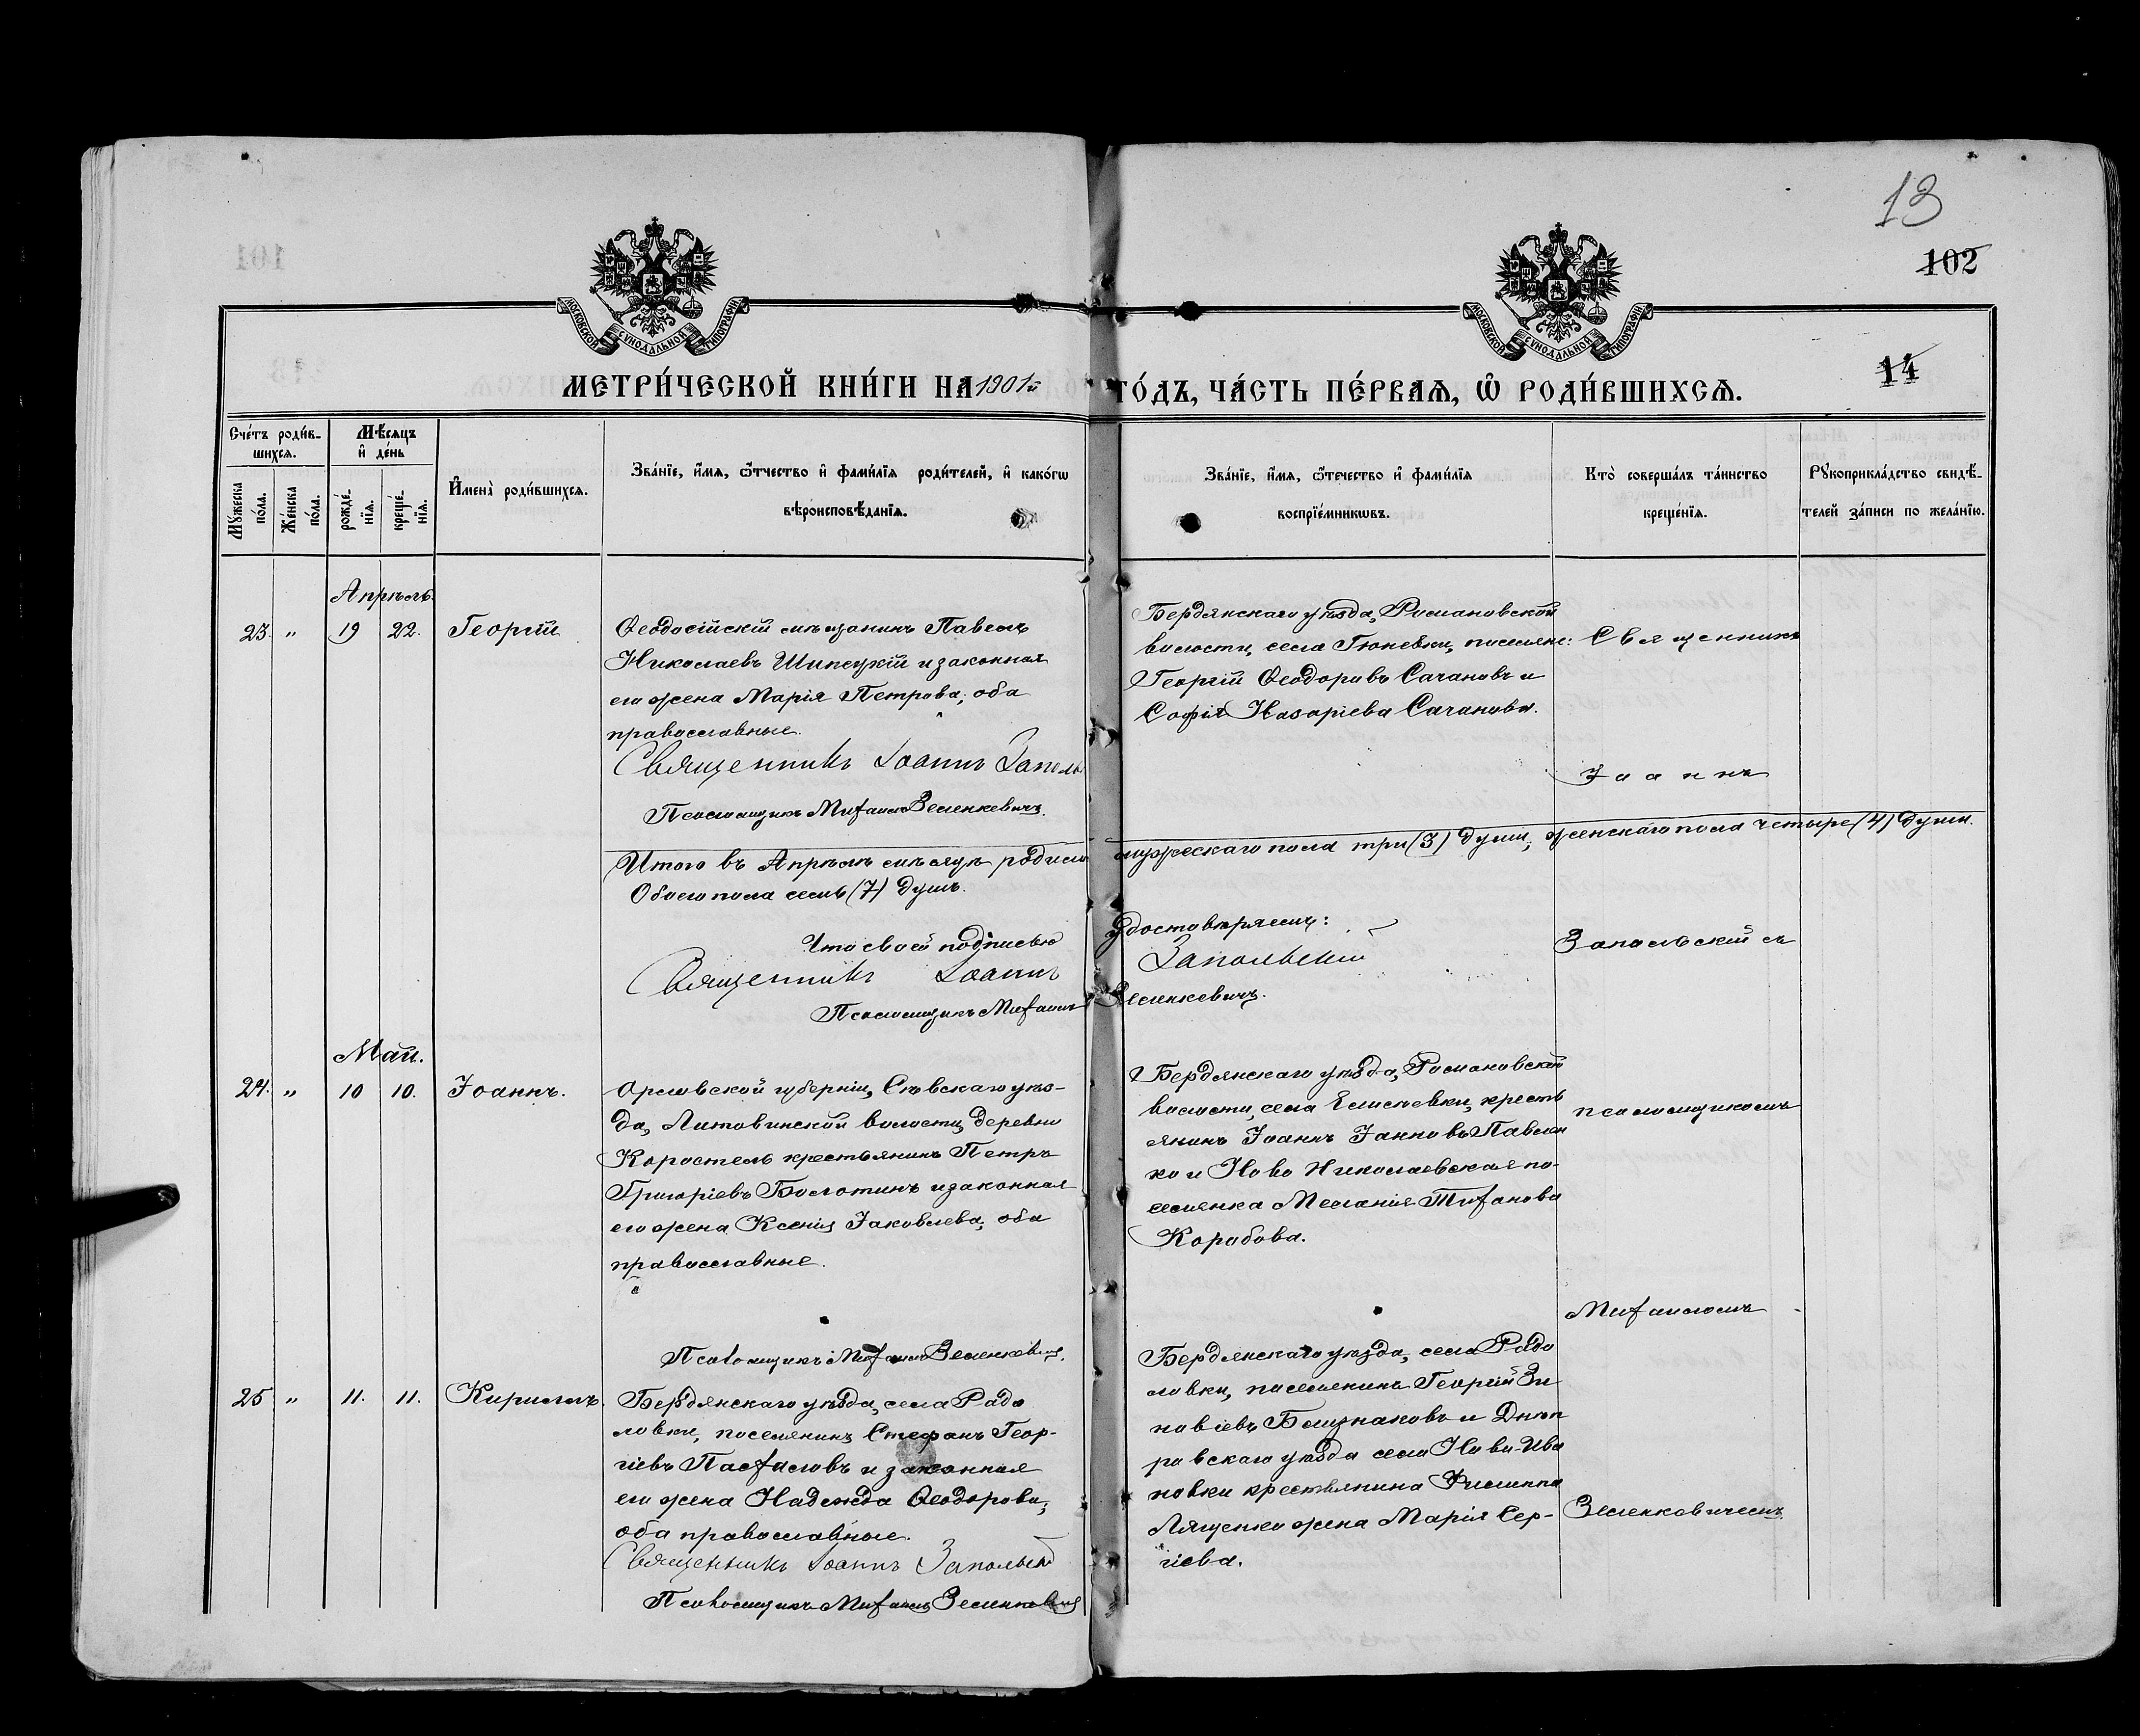 13
102
14
МОСКОВСКОЙ СѴНОДАЛЬНОЙ ТИПОГРАФІИ
МОСКОВСКОЙ СѴНОДАЛЬНОЙ ТИПОГРАФІИ
МЕТРИ́ЧЕСКОЙ КНИ́ГИ НА 1901й ГО́ДЪ, ЧА́СТЬ ПЕ́РВАѦ, Ѡ҆ РОДИ́ВШИХСѦ.
Сче́тъ роди́в-
шихсѧ.
Мꙋ́жеска по́ла.
Же́нска по́ла.
Мѣ́сѧцъ
и҆ де́нь
рожде́-
нїѧ.
креще́-
нїѧ.
И҆мена̀ роди́вшихсѧ.
Зва́нїе, и҆́мѧ, ѻ҆́тчество и҆ фами́лїѧ роди́телей, и҆ како́гѡ
вѣроисповѣ́данїѧ.
Зва́нїе, и҆́мѧ, ѻ҆́течество и҆ фами́лїѧ
воспрїе́мникѡвъ.
Кто̀ соверша́лъ та́инство
креще́нїѧ.
Рꙋкоприкла́дство свидѣ́-
телей за́писи по жела́нїю.
Апрѣль.
23. " 19 22. Георгій
Ѳеодосійскій мѣщанинъ Павелъ
Николаевъ Шипецкій и законная
его жена Марія Петрова, оба
православные.
Священникъ Іоаннъ Заполь
Псаломщикъ Михаилъ Зеленкевичъ.
Бердянскаго уѣзда, Романовской
волости, села Гюневки, поселяне:
Георгій Ѳеодоровъ Сачановъ и
Софія Назаріева Сачанова.
Священникъ
Іоаннъ
Итого въ Апрѣлѣ мѣсяцѣ родилось мужескаго пола три (3) души, женскаго пола четыре (4) души.
Обоего пола семь (7) душъ.
Что своей подписью удостовѣряемъ:
Священникъ Іоаннъ Запольскій
Псаломщикъ Михаилъ Зеленкевичъ.
Запольскій съ
Май.
24. " 10 10. Іоаннъ.
Орловской губерніи, Сѣвскаго уѣз-
да, Литовинской волости, деревни
Коростель крестьянинъ Петръ
Григоріевъ Болотинъ и законная
его жена Ксенія Іаковлева, оба
православные.
Псаломщикъ Михаилъ Зеленкевичъ.
Бердянскаго уѣзда, Романовской
волости, села Елисѣевки, кресть
янинъ Іоаннъ Іанновъ Павлен
ко и Ново Николаевская по-
селянка Меланія Тифанова
Коробова.
псаломщикомъ
Михаиломъ
25 " 11. 11. Кириллъ.
Бердянскаго уѣзда, села Радо
ловки, поселянинъ Стефанъ Геор-
гіевъ Пасхаловъ и законная
его жена Надежда Ѳеодорова,
оба православные.
Священникъ Іоаннъ Запольскій
Псаломщикъ Михаилъ Зеленкевичъ
Бердянскаго уѣзда, села Радо
ловки, поселянинъ Георгій Зи
новіевъ Балцнаковъ и Днѣп
ровскаго уѣзда села Ново-Ива
новки крестьянина Филиппа
Лященко жена Марія Сер-
гіева.
Зеленковичемъ